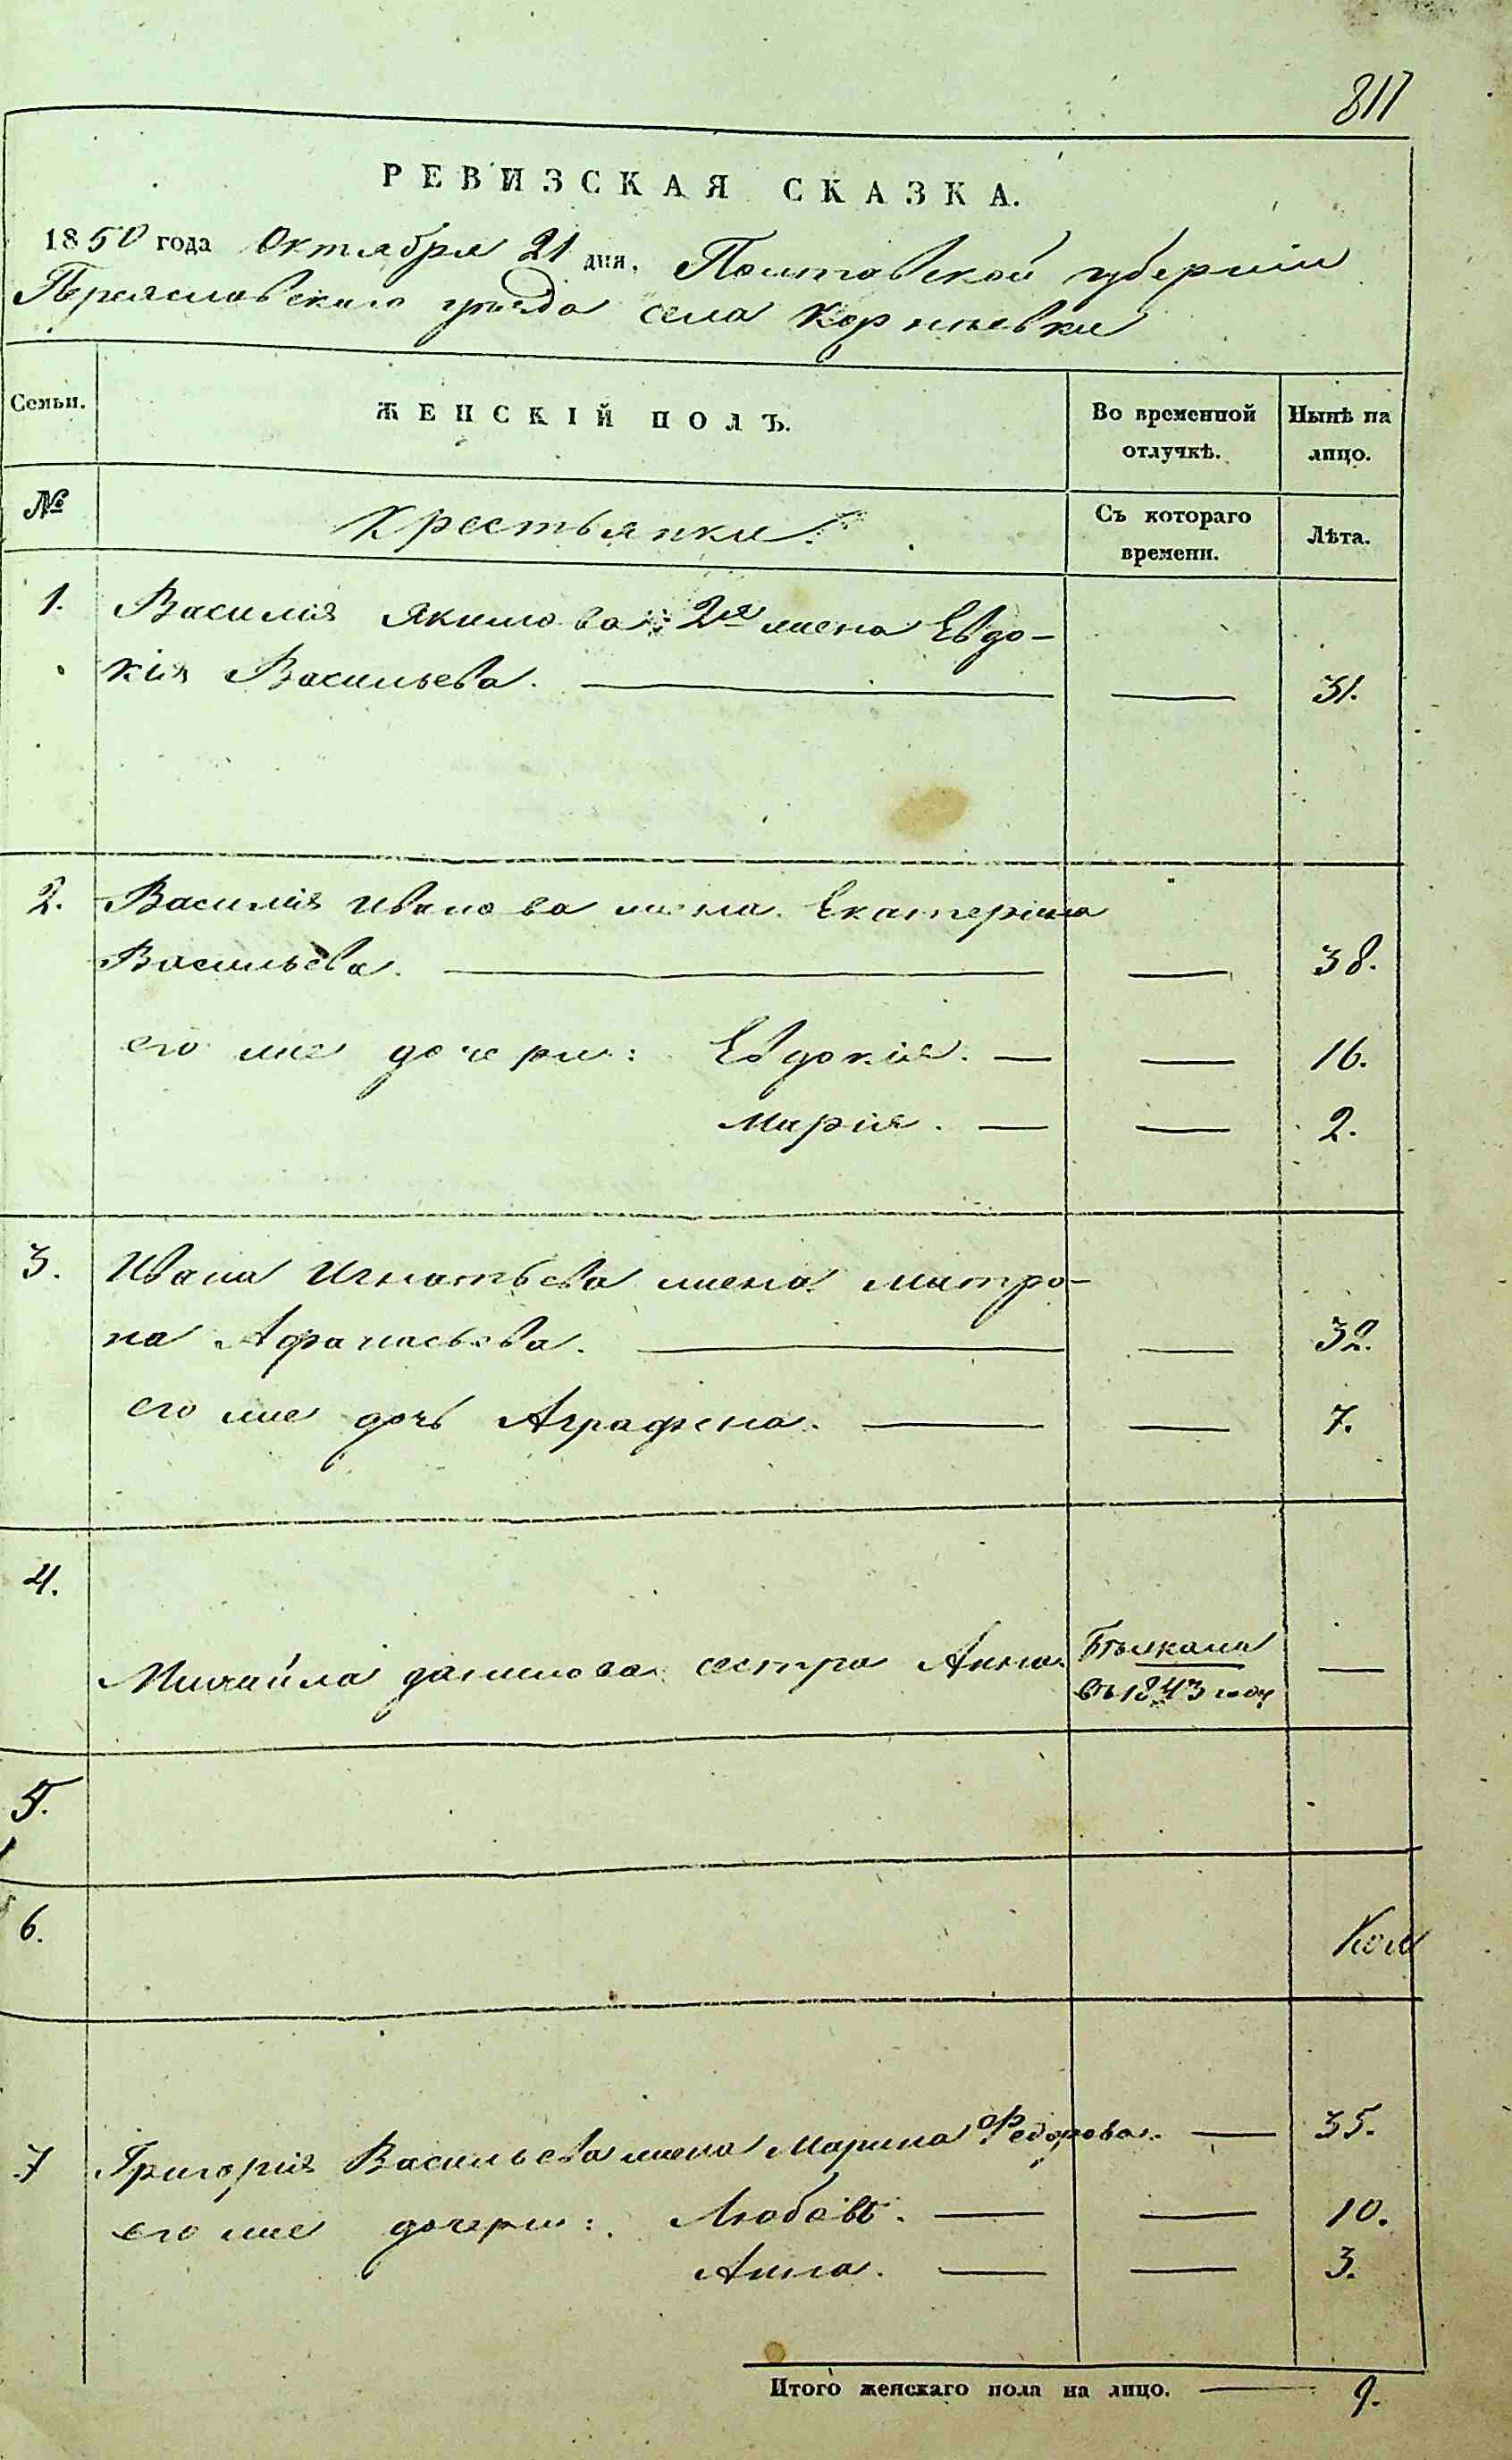 817
РЕВИЗСКАЯ СКАЗКА.
1850 года Октября 21 дня. Полтавской губерніи
Переяславскаго уѣзда села Корнѣевки
Семьи. ЖЕНСКІЙ ПОЛЪ. Во временной отлучкѣ. Нынѣ на лицо.
№ Крестьянки. Съ котораго времени. Лѣта.
1. Василія Якимова 2я жена Евдо-
кія Васильева. — — 31.
2. Василія Иванова жена Екатерина
Васильева. — — 38.
его же дочери: Евдокія. — — 16.
Марія. — — 2.
3. Ивана Игнатьева жена Матро-
на Афанасьева. — — 32.
его же дочь Аграфена. — — 7.
4.
Михайла Данилова сестра Анна. въ 1843 году —
5.
6.
7 Григорія Васильева жена Марина Федорова. — 35.
его же дочери: Любовь. — — 10.
Анна. — — 3.
Итого женскаго пола на лицо. — 9.